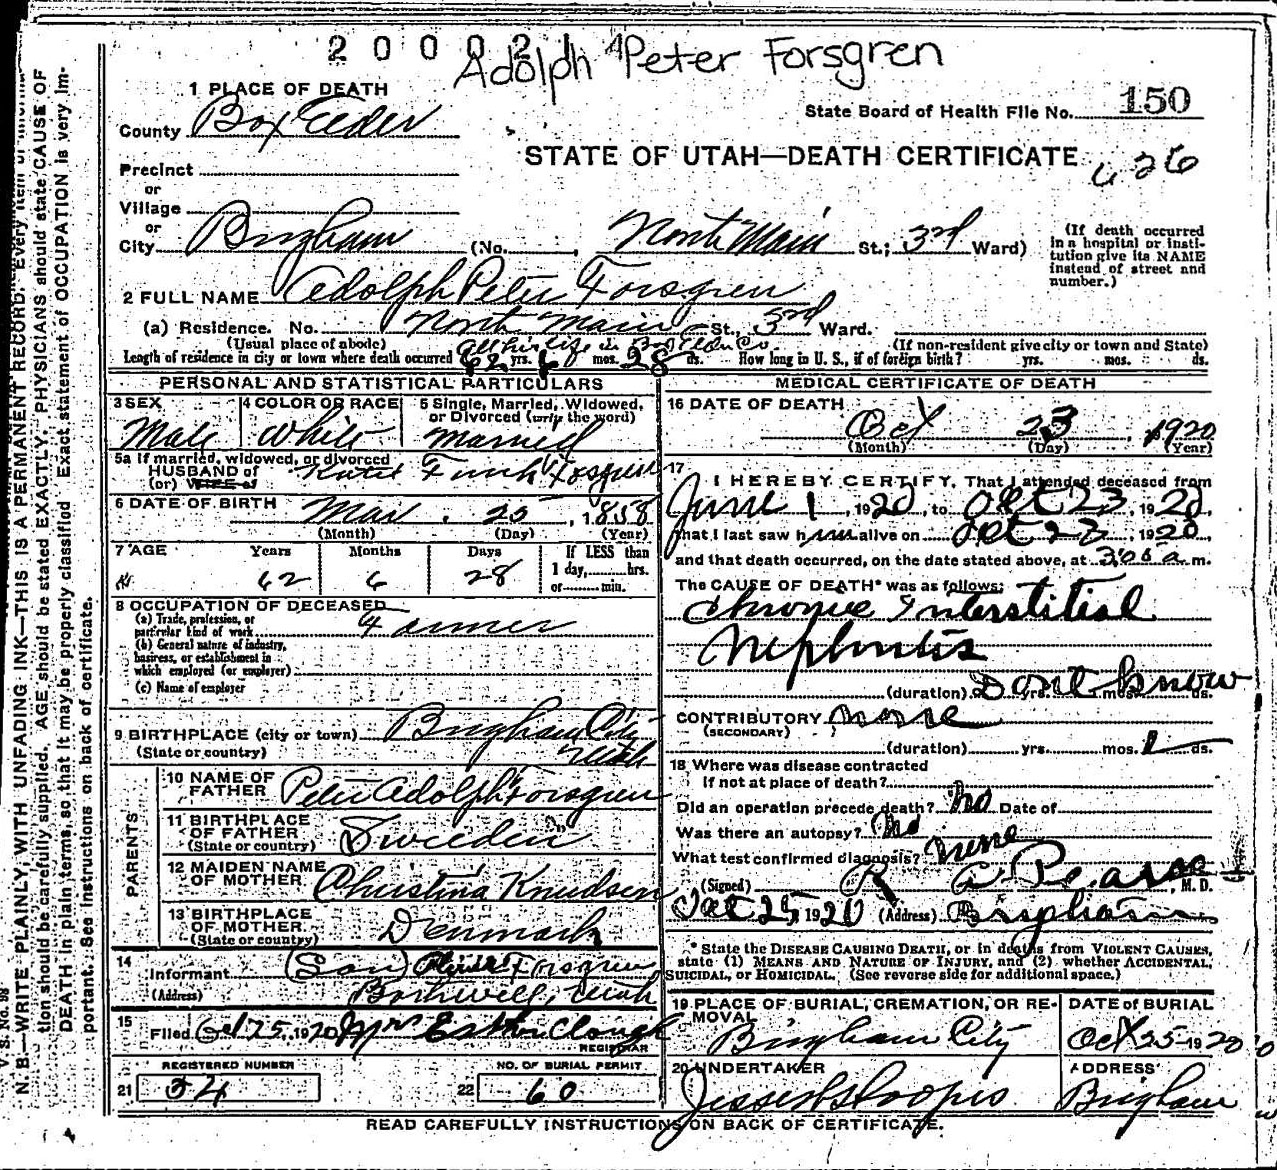 2 0 0 0 2 1 4
Adolph Peter Forsgren
1 PLACE OF DEATH
County Box Elder
State Board of Health File No. 150
STATE OF UTAH—DEATH CERTIFICATE 626
Precinct
or
Village
or
City Brigham (No. , North Main St.; 3rd Ward)
(If death occurred in a hospital or institution give its NAME instead of street and number.)
2 FULL NAME Adolph Peter Forsgren
(a) Residence. No. North Main St., 3rd Ward.
(Usual place of abode) (If non-resident give city or town and State)
All his life in Box Elder Co
Length of residence in city or town where death occurred 62 yrs. 6 mos. 28 ds. How long in U. S., if of foreign birth? yrs. mos. ds.
PERSONAL AND STATISTICAL PARTICULARS
3 SEX Male
4 COLOR OR RACE White
5 Single, Married, Widowed, or Divorced (write the word) Married
5a If married, widowed, or divorced
HUSBAND of
(or) WIFE of Forsgren
6 DATE OF BIRTH Mar. 25, 1858
(Month) (Day) (Year)
7 AGE Years Months Days If LESS than
62 6 28 1 day, hrs.
or min.
8 OCCUPATION OF DECEASED
(a) Trade, profession, or particular kind of work Farmer
(b) General nature of industry, business, or establishment in which employed (or employer)
(c) Name of employer
9 BIRTHPLACE (city or town) Brigham City
(State or country) Utah
PARENTS
10 NAME OF FATHER Peter Adolph Forsgren
11 BIRTHPLACE OF FATHER Sweeden
(State or country)
12 MAIDEN NAME OF MOTHER Christina Knudsen
13 BIRTHPLACE OF MOTHER Denmark
(State or country)
14 Informant (Son) Forsgren
(Address) Bothwell, Utah
15 Filed Oct 25, 1920 Mrs Esther Clough
REGISTRAR
REGISTERED NUMBER NO. OF BURIAL PERMIT
21 34 22 60
MEDICAL CERTIFICATE OF DEATH
16 DATE OF DEATH Oct 23, 1920
(Month) (Day) (Year)
17 I HEREBY CERTIFY, That I attended deceased from
June 1, 1920, to Oct 23, 1920,
that I last saw him alive on Oct 23, 1920,
and that death occurred, on the date stated above, at a m.
The CAUSE OF DEATH* was as follows:
Chronic Interstitial
Nephritis
(duration) Dont yrs. mos. know ds.
CONTRIBUTORY none
(SECONDARY)
(duration) yrs. mos. ds.
18 Where was disease contracted
If not at place of death?
Did an operation precede death? No Date of
Was there an autopsy? No
What test confirmed diagnosis? none
(Signed) R A Pearse, M. D.
Oct 25, 1920 (Address) Brigham
* State the DISEASE CAUSING DEATH, or in deaths from VIOLENT CAUSES, state (1) MEANS AND NATURE OF INJURY, and (2) whether ACCIDENTAL, SUICIDAL, or HOMICIDAL. (See reverse side for additional space.)
19 PLACE OF BURIAL, CREMATION, OR REMOVAL Brigham City
DATE of BURIAL Oct 25 1920
20 UNDERTAKER
ADDRESS Brigham
READ CAREFULLY INSTRUCTIONS ON BACK OF CERTIFICATE.
V. S. No. 98
N. B.—WRITE PLAINLY, WITH UNFADING INK—THIS IS A PERMANENT RECORD. Every item of information should be carefully supplied. AGE should be stated EXACTLY. PHYSICIANS should state CAUSE OF DEATH in plain terms, so that it may be properly classified. Exact statement of OCCUPATION is very important. See instructions on back of certificate.